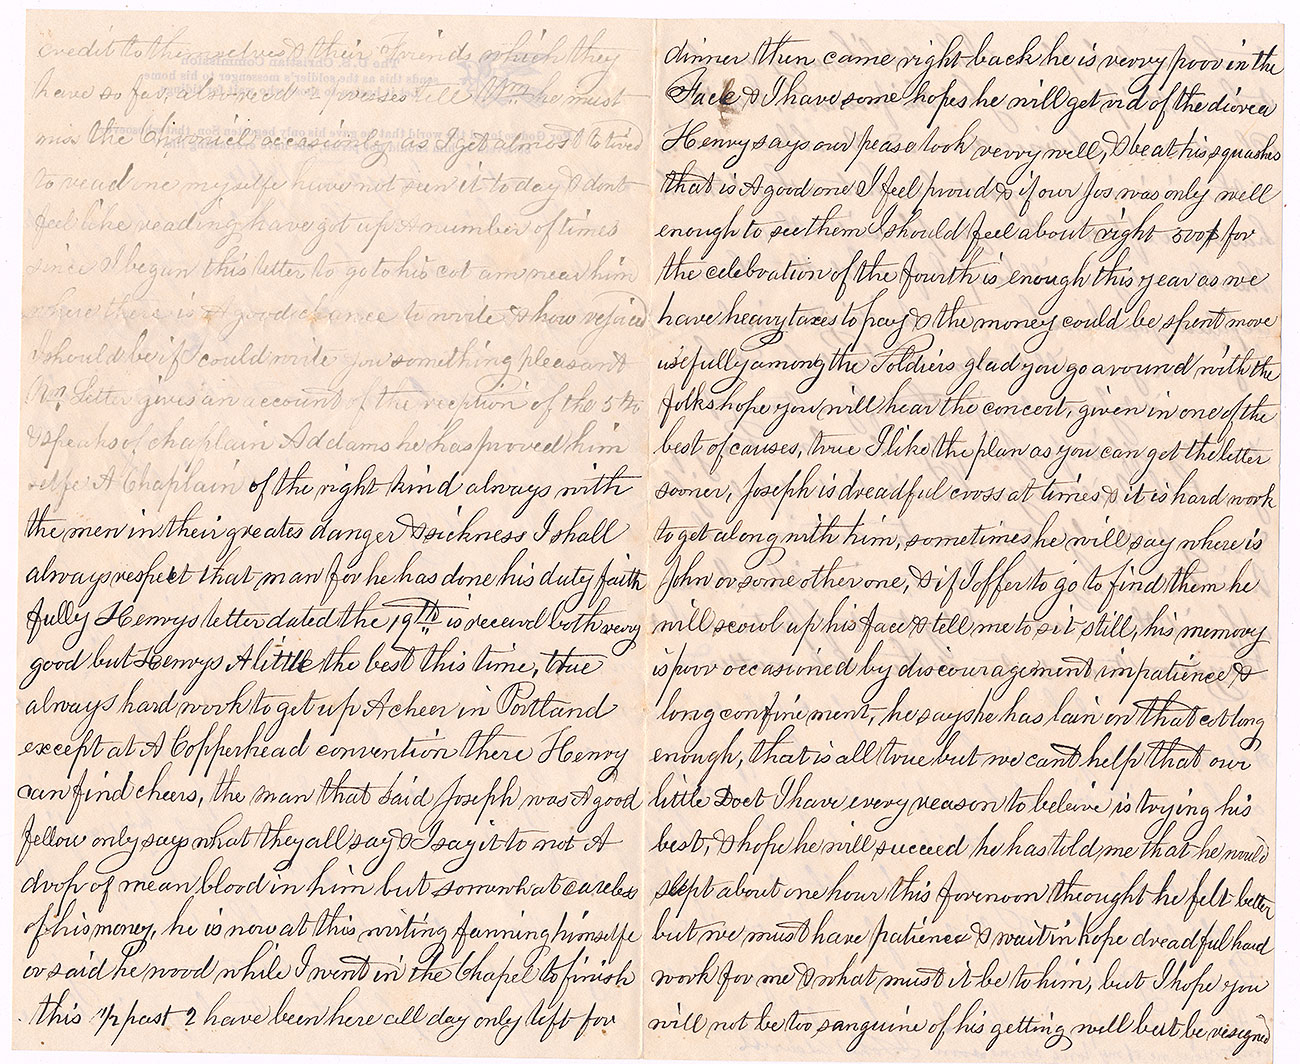 credit to themselves & their Friends which they
have so far, allways I prosses till Wm he must
miss the Chronicle occasionly as I get almost to tired
to read one myselfe have not seen it to day & dont
feel like reading, have got up A number of times
since I began this letter to go to his cot am near him
where there is A good chance to write & how rejoiced
I should be if I could write you something pleasant
Wm Letter gives an account of the reception of the 5th
& speaks of chaplain Addams he has proved him
selfe A Chaplain of the right kind always with
the men in their greates danger & sickness I shall
always respect that man for he has done his duty faith
fully Henrys letter dated the 19th is receivd both very
good but Henrys A little the best this time, true
always hard work to get up A cheer in Portland
except at A Copperhead convention there Henry
can find cheers, the man that said Joseph was A good
fellow only says what they all say & I say it to not A
drop of mean blood in him but somwhat careless
of his money, he is now at this writing fanning himselfe
or said he wood while I went in the Chapel to finish
this 1/2 past 2 have been here all day only left for
dinner then came right back he is verry poor in the
Face & I have some hopes he will get rid of the diorea
Henry says our pease look verry well, & beat his squashes
that is A good one I feel proud & if our Jos was only well
enough to see them I should feel about right 500$ for
the celebration of the fourth is enough this year as we
have heavy taxes to pay & the money could be spent more
usefully among the Soldiers glad you go around with the
folks hope you will hear the concert, given in one of the
best of causes, true I like the plan as you can get the letter
sooner, Joseph is dreadful cross at times & it is hard work
to get along with him, sometimes he will say where is
John or some other one, & if I offer to go to find them he
will scowl up his face & tell me to sit still, his memory
is poor occasioned by discouragement impatience &
long confinement, he says he has lain on that cot long
enough, that is all true but we cant help that our
little Doct I have every reason to beleive is trying his
best, & hope he will succeed he has told me that he would
slept about one hour this forenoon theought he felt better
but we must have patience & wait in hope dreadful hard
work for me & what must it be to him, but I hope you
will not be too sanguine of his getting well but be resigned